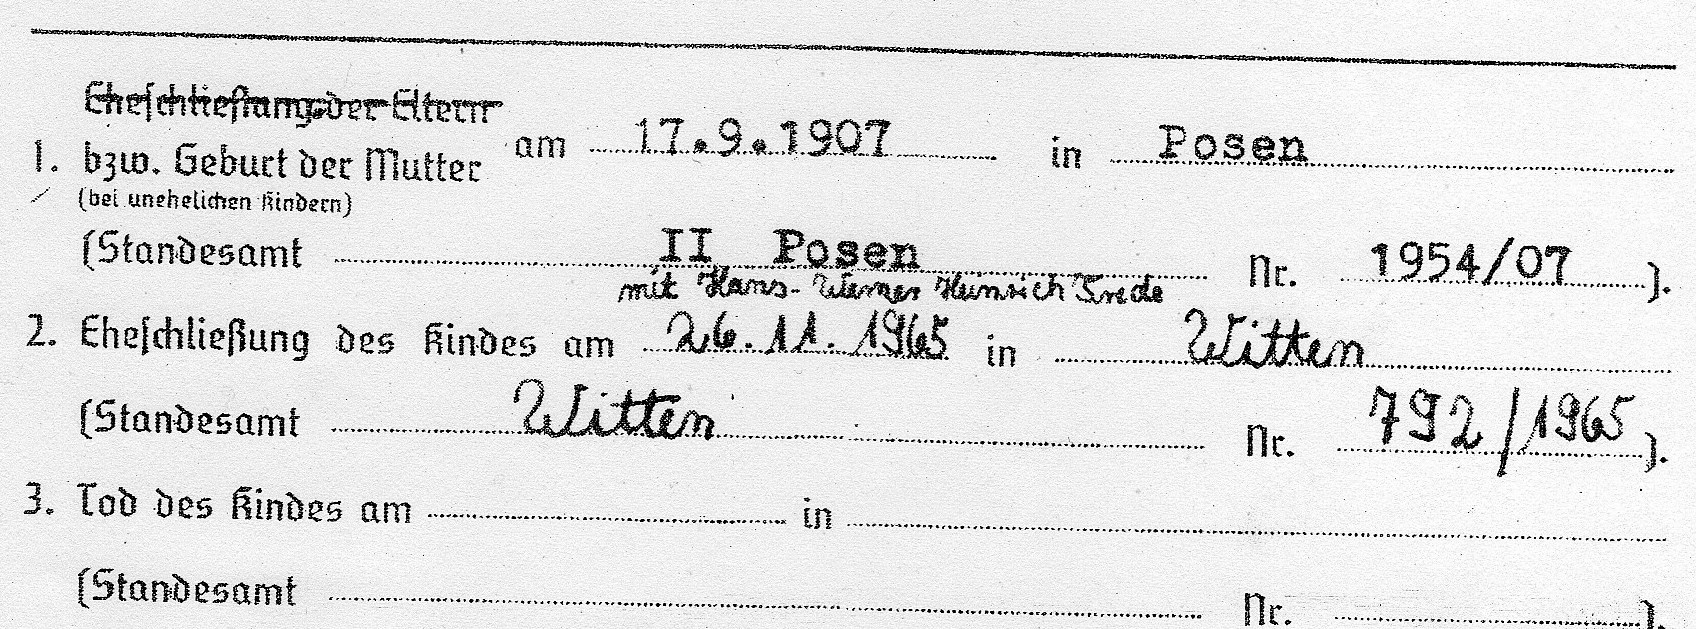 Eheschließung der Eltern
1. bzw. Geburt der Mutter am 17.9.1907 in Posen
(bei unehelichen Kindern)
(Standesamt II Posen Nr. 1954/07 ).
mit Hans-Werner Heinrich Trede
2. Eheschließung des Kindes am 26.11.1965 in Witten
(Standesamt Witten Nr. 792/1965 ).
3. Tod des Kindes am in
(Standesamt Nr. ).